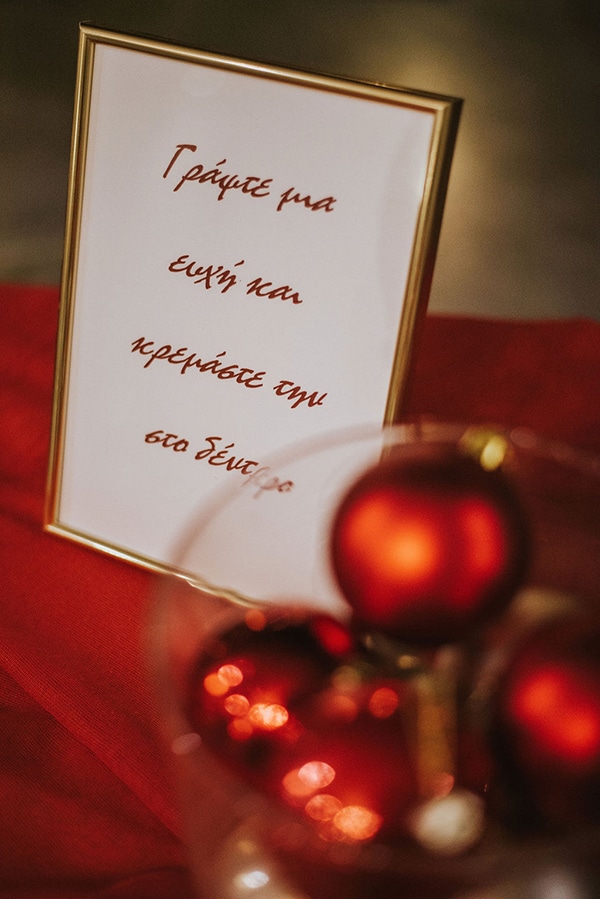 Γράψτε μια
ευχή και
κρεμάστε την
στο δέντρο